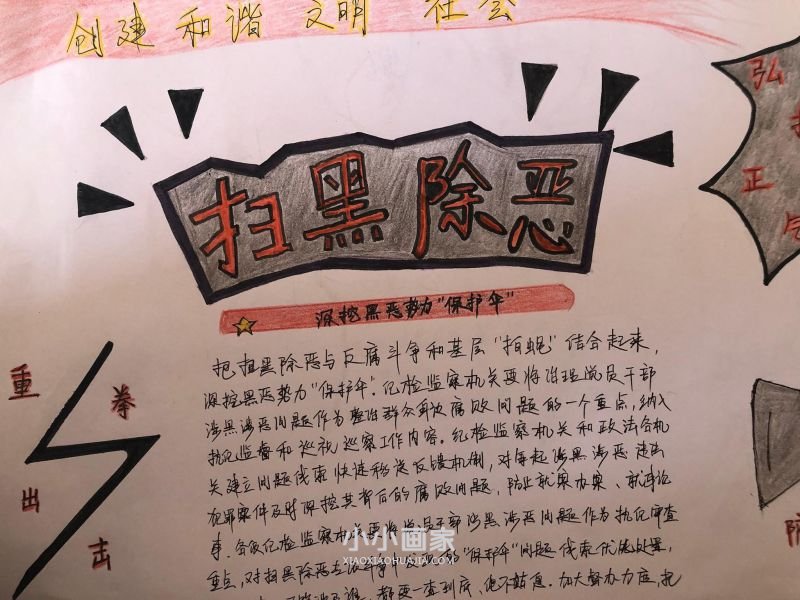 创建和谐 文明 社会
扫黑除恶
深挖黑恶势力"保护伞"
弘
正
气
重拳
出击
把扫黑除恶与反腐斗争和基层"拍蝇"结合起来,
深挖黑恶势力"保护伞"。纪检监察机关要将治理党员干部
涉黑涉恶问题作为整治群众身边腐败问题的一个重点,纳入
执纪监督和巡视巡察工作内容。纪检监察机关和政法各机
关建立问题线索快速移送反馈机制,对每起涉黑涉恶违法
犯罪案件及时深挖其背后的腐败问题,防止就案办案、就事论
事。各级纪检监察机关要将党员干部涉黑涉恶问题作为执纪审查
重点,对扫黑除恶"保护伞"问题线索优先处置,
都要一查到底、绝不姑息。加大督办力度,把
小小画家
XIAOXIAOHUAJIA.COM